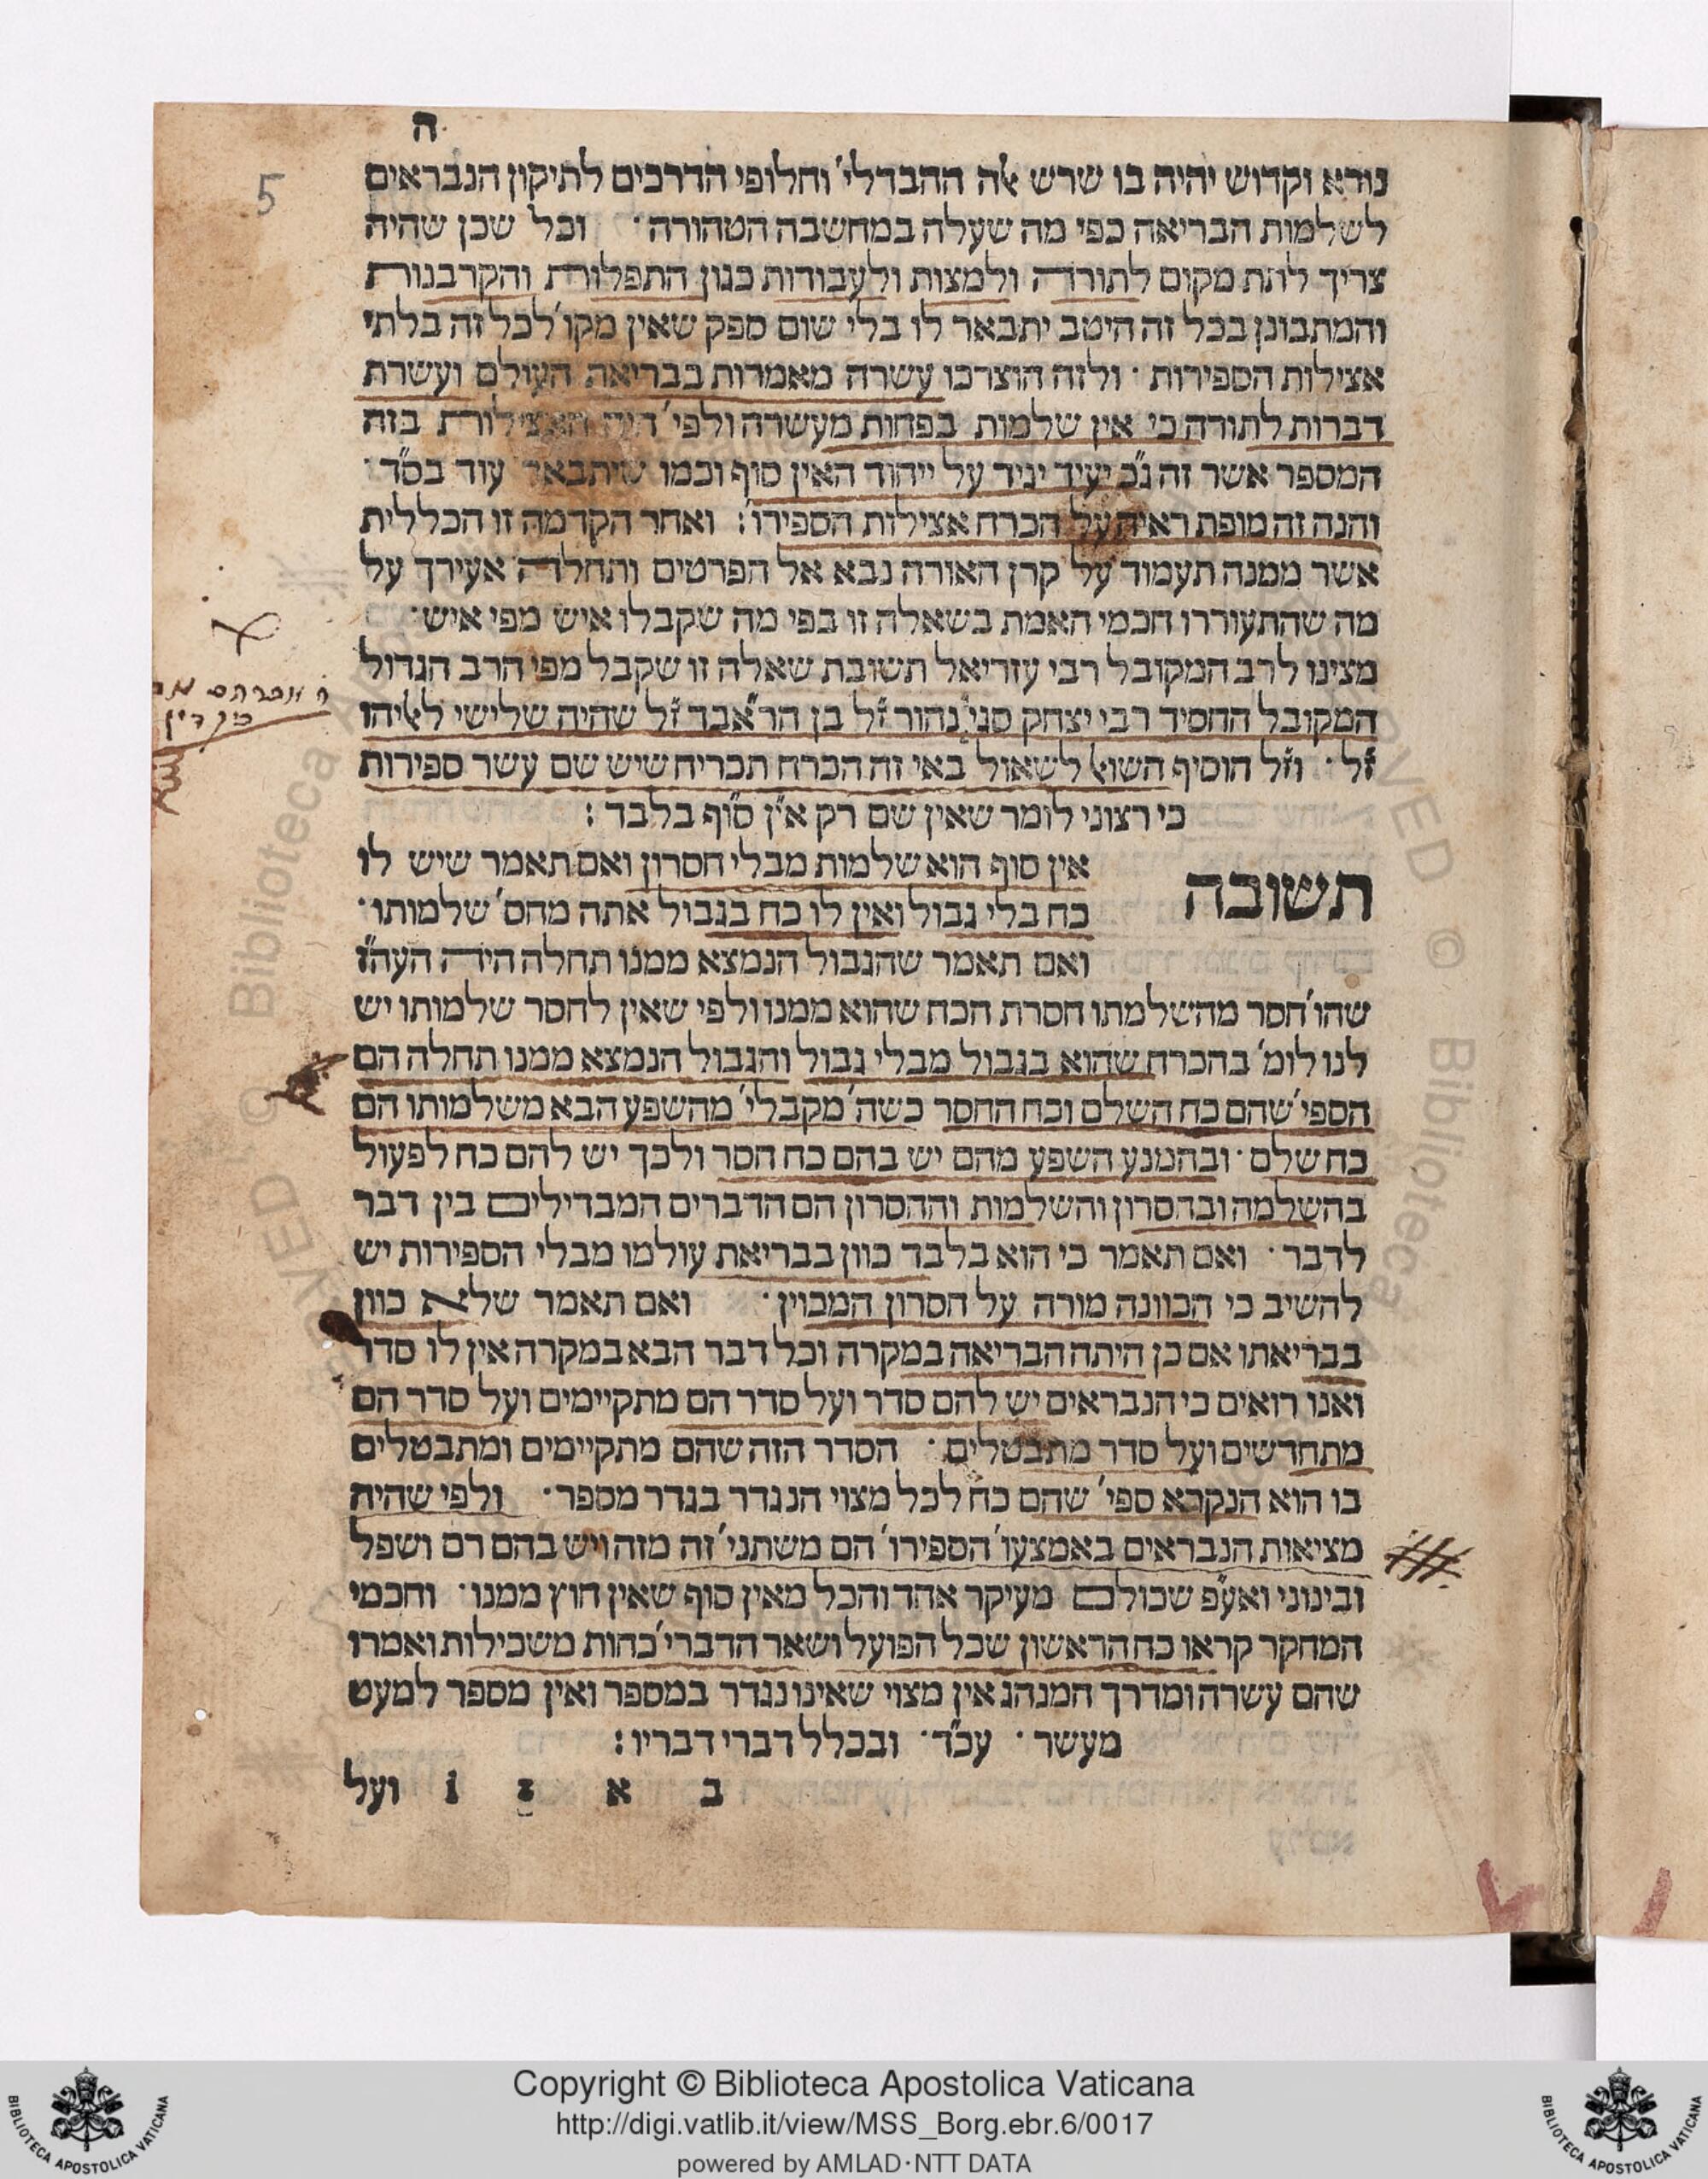 ה
5
נורא וקדוש יהיה בו שרש אלה ההבדלי' וחלופי הדרכים לתיקון הנבראים
לשלמות הבריאה כפי מה שעלה במחשבה הטהורה · וכל שכן שהיה
צריך לתת מקום לתורה ולמצות ולעבודות כגון התפלות והקרבנות
והמתבונן בכל זה היטב יתבאר לו בלי שום ספק שאין מקו' לכל זה בלתי
אצילות הספירות · ולזה הוצרכו עשרה מאמרות בבריאה העולם ועשרת
דברות לתורה כי אין שלמות בפחות מעשרה ולפי' היה האצילות בזה
המספר אשר זה ג"כ יעיד יגיד על ייהוד האין סוף וכמו שיתבאר עוד בס"ד ·
והנה זה מופת ראיה על הכרח אצילות הספירו' : ואחר הקדמה זו הכללית
אשר ממנה תעמוד על קרן האורה נבא אל הפרטים ותחלה אעירך על
מה שהתעוררו חכמי האמת בשאלה זו בפי מה שקבלו איש מפי איש ·
מצינו לרב המקובל רבי עזריאל תשובת שאלה זו שקבל מפי הרב הגדול
המקובל החסיד רבי יצחק סגי נהור ז"ל בן הר"אבד ז"ל שהיה שלישי לאליהו
ז"ל · וז"ל הוסיף השואל לשאול באי זה הכרח תכריח שיש שם עשר ספירות
כי רצוני לומר שאין שם רק א"ין ס"וף בלבד :
תשובה
אין סוף הוא שלמות מבלי חסרון ואם תאמר שיש לו
כח בלי גבול ואין לו כח בגבול אתה מחס' שלמותו ·
ואם תאמר שהגבול הנמצא ממנו תחלה היה העה"ז
שהו' חסר מהשלמתו חסרת הכח שהוא ממנו ולפי שאין לחסר שלמותו יש
לנו לומ' בהכרח שהוא בגבול מבלי גבול והגבול הנמצא ממנו תחלה הם
הספי' שהם כח השלם וכח החסר כשה' מקבלי' מהשפע הבא משלמותו הם
כח שלם · ובהמנע השפע מהם יש בהם כח חסר ולכך יש להם כח לפעול
בהשלמה ובחסרון והשלמות והחסרון הם הדברים המבדילים בין דבר
לדבר · ואם תאמר כי הוא בלבד כוון בבריאת עולמו מבלי הספירות יש
להשיב כי הכוונה מורה על חסרון המכוין · ואם תאמר שלא כוון
בבריאתו אם כן היתה הבריאה במקרה וכל דבר הבא במקרה אין לו סדר
ואנו רואים כי הנבראים יש להם סדר ועל סדר הם מתקיימים ועל סדר הם
מתחדשים ועל סדר מתבטלים · הסדר הזה שהם מתקיימים ומתבטלים
בו הוא הנקרא ספי' שהם כח לכל מצוי הנגדר בגדר מספר · ולפי שהיה
מציאות הנבראים באמצעו' הספירו' הם משתני' זה מזה ויש בהם רם ושפל
ובינוני ואע"פ שכולם מעיקר אחד והכל מאין סוף שאין חוץ ממנו · וחכמי
המחקר קראו כח הראשון שכל הפועל ושאר הדברי' כחות משכילות ואמרו
שהם עשרה ומדרך המנהג אין מצוי שאינו נגדר במספר ואין מספר למעט
מעשר · עכ"ד · ובכלל דברי דבריו :
ב א 2 1 ועל
Copyright © Biblioteca Apostolica Vaticana
http://digi.vatlib.it/view/MSS_Borg.ebr.6/0017
powered by AMLAD·NTT DATA
BIBLIOTECA APOSTOLICA VATICANA
BIBLIOTECA APOSTOLICA VATICANA